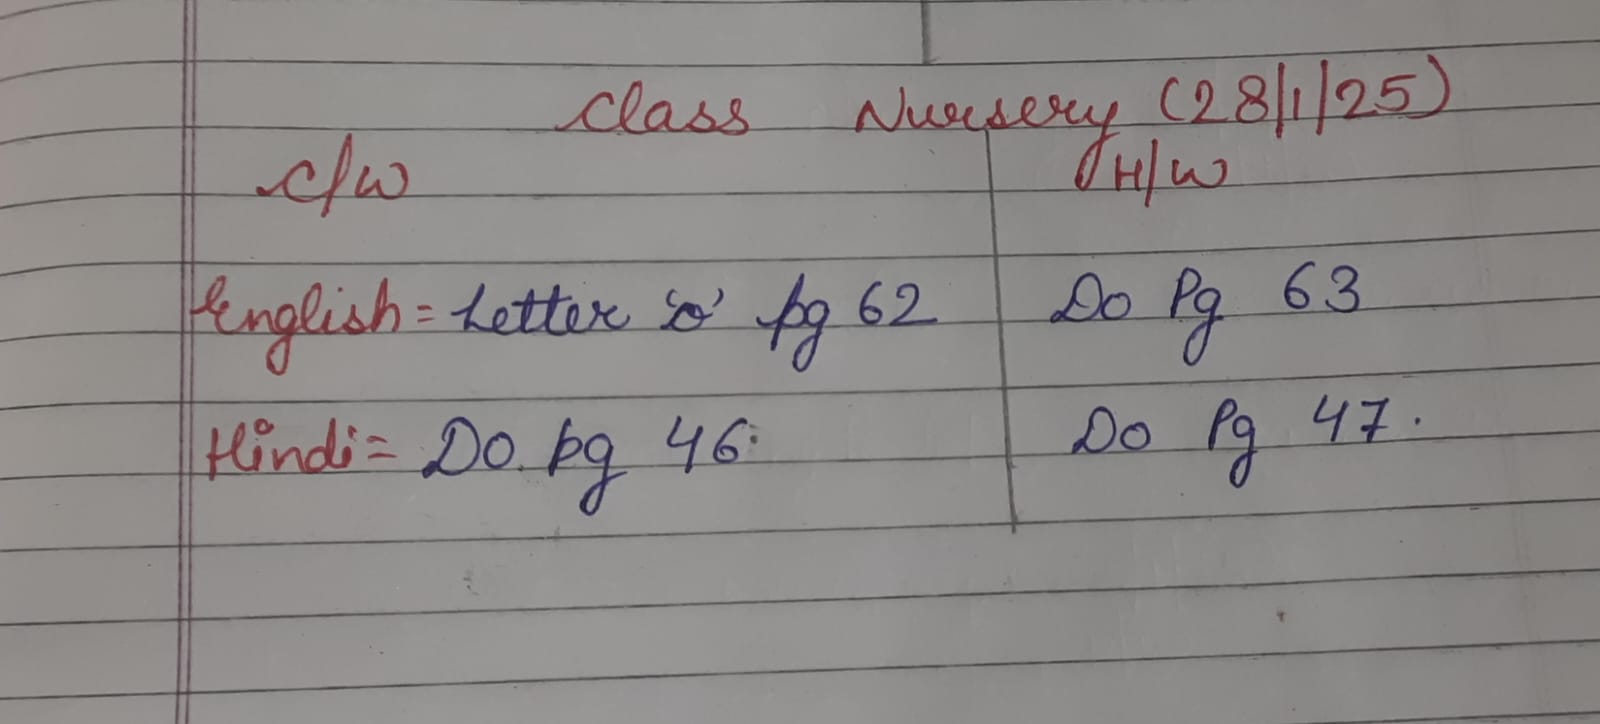 Class Nursery (28/1/25)
C/W H/W
English = Letter pg 62 Do Pg 63
Hindi = Do pg 46. Do Pg 47.